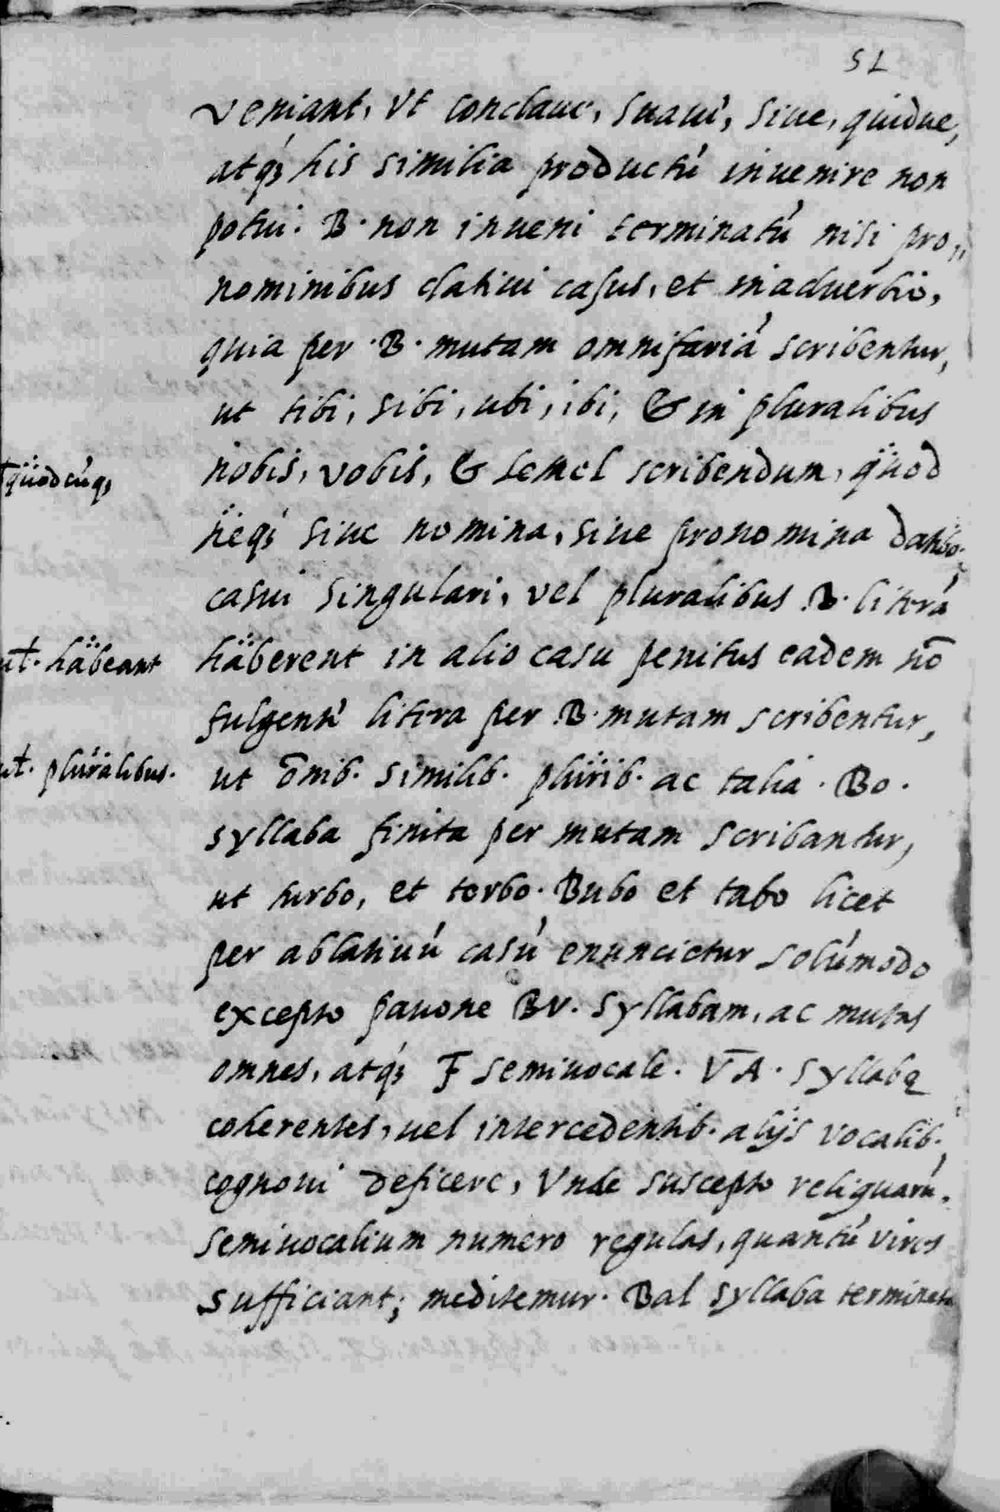 51
veniant, vt conclaue, suaui, siue, quidue,
atq́; his similia productú inuenire non
potui. B. non inueni terminatú nisi pro,,
nominibus datiui casus, et in aduerbio,
quia per .B. mutam omnifariá scribentur,
ut tibi, sibi, ubi, ibi, & in pluralibus
nobis, vobis, & semel scribendum, q̈uod
quodcúq,
neq́ siue nomina, siue pronomina datiuo
casui singulari, vel pluralibus B. literá
at. häbeant
häberent in alio casu penitus eadem nō
fulgenti litera per B. mutam scribentur,
at. plüralibus.
ut ōnib. similib. plürib. ac talia. Bo.
syllaba finita per mutam scribantur,
ut turbo, et torbo. Bubo et tabo licet
per ablatiuú casú enuncietur solúmodo
excepto pauone BV. syllabam, ac mutas
omnes, atq́; F semiuocale. V̄A. syllabę
coherentes, uel intercedentib. alijs vocalib.
cognoui deficere, Vnde suscepto reliquarú.
semiuocalium numero regulas, quantú vires
sufficiant; meditemur. Bal syllaba terminata